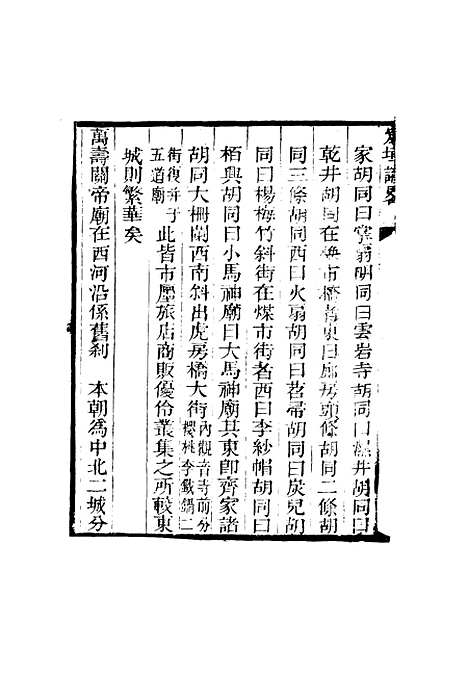 宸垣識畧
家胡同曰掌扇胡同曰雲岩寺胡同曰湿井胡同曰
乾井胡同在梅市橋者東曰廊房頭條胡同二條胡
同三條胡同西曰火扇胡同曰苕帚胡同曰炭兒胡
同曰楊梅竹斜街在煤市街者西曰李紗帽胡同曰
栢興胡同曰小馬神廟曰大馬神廟其東即齊家諸
胡同大柵闌西南斜出虎房橋大街內觀音寺前分櫻桃李鐵鍋二
街復并于五道廟此皆市廛旅店商販優伶叢集之所較東
城則繁華矣
萬壽關帝廟在西河沿係舊剎 本朝為中北二城分